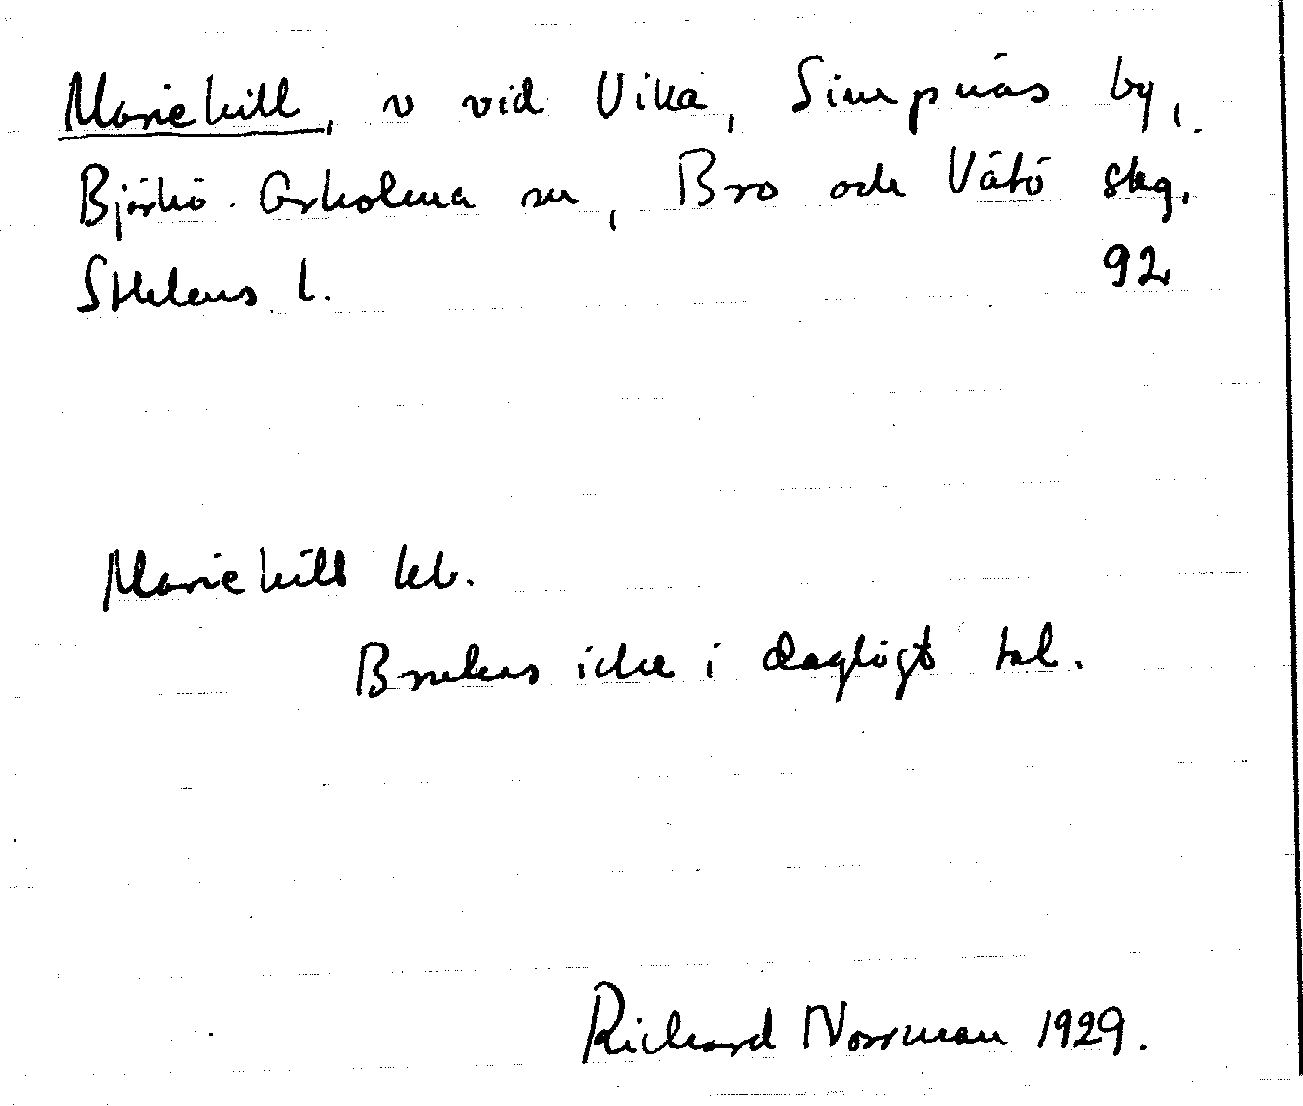 Mariehill, v vid Vika, Simpnäs by,
Björkö-Arholma sn, Bro och Vätö skg.
Sthlms l. 92
Mariehill kb.
Brukas icke i dagligt tal.
Richard Norrman 1929.